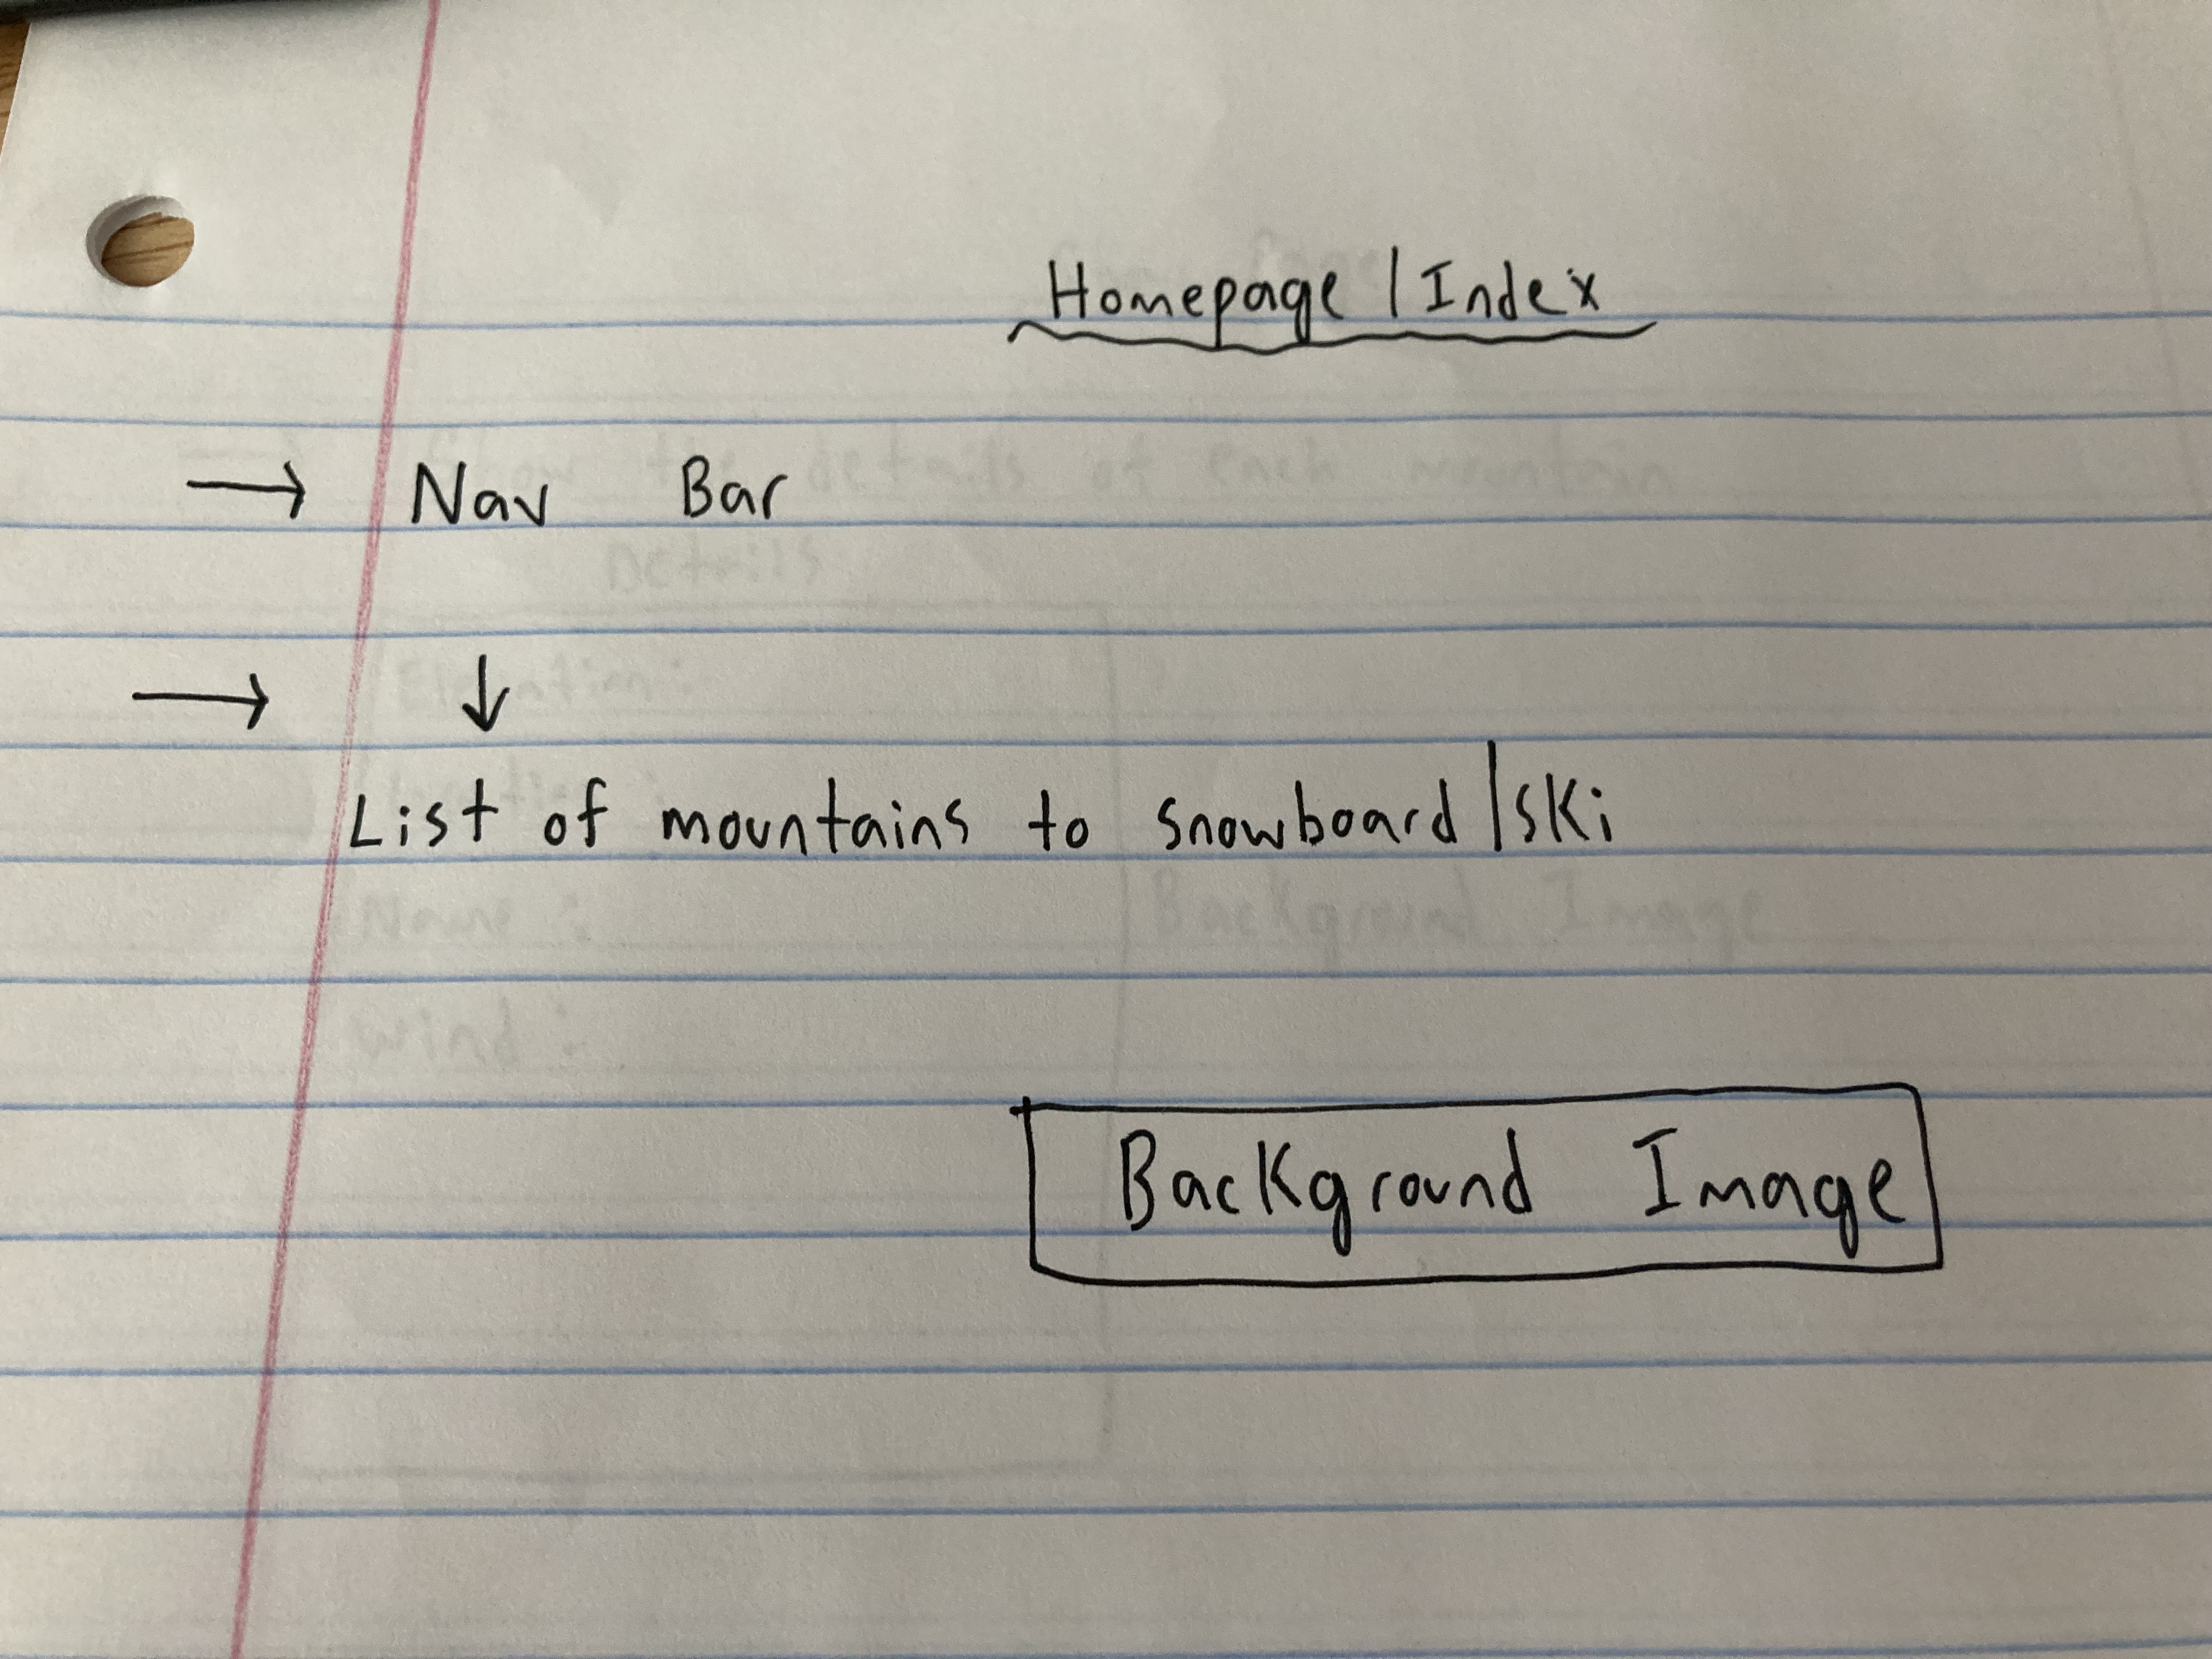 Homepage | Index
→ Nav Bar
→ ↓
List of mountains to snowboard | ski
Background Image